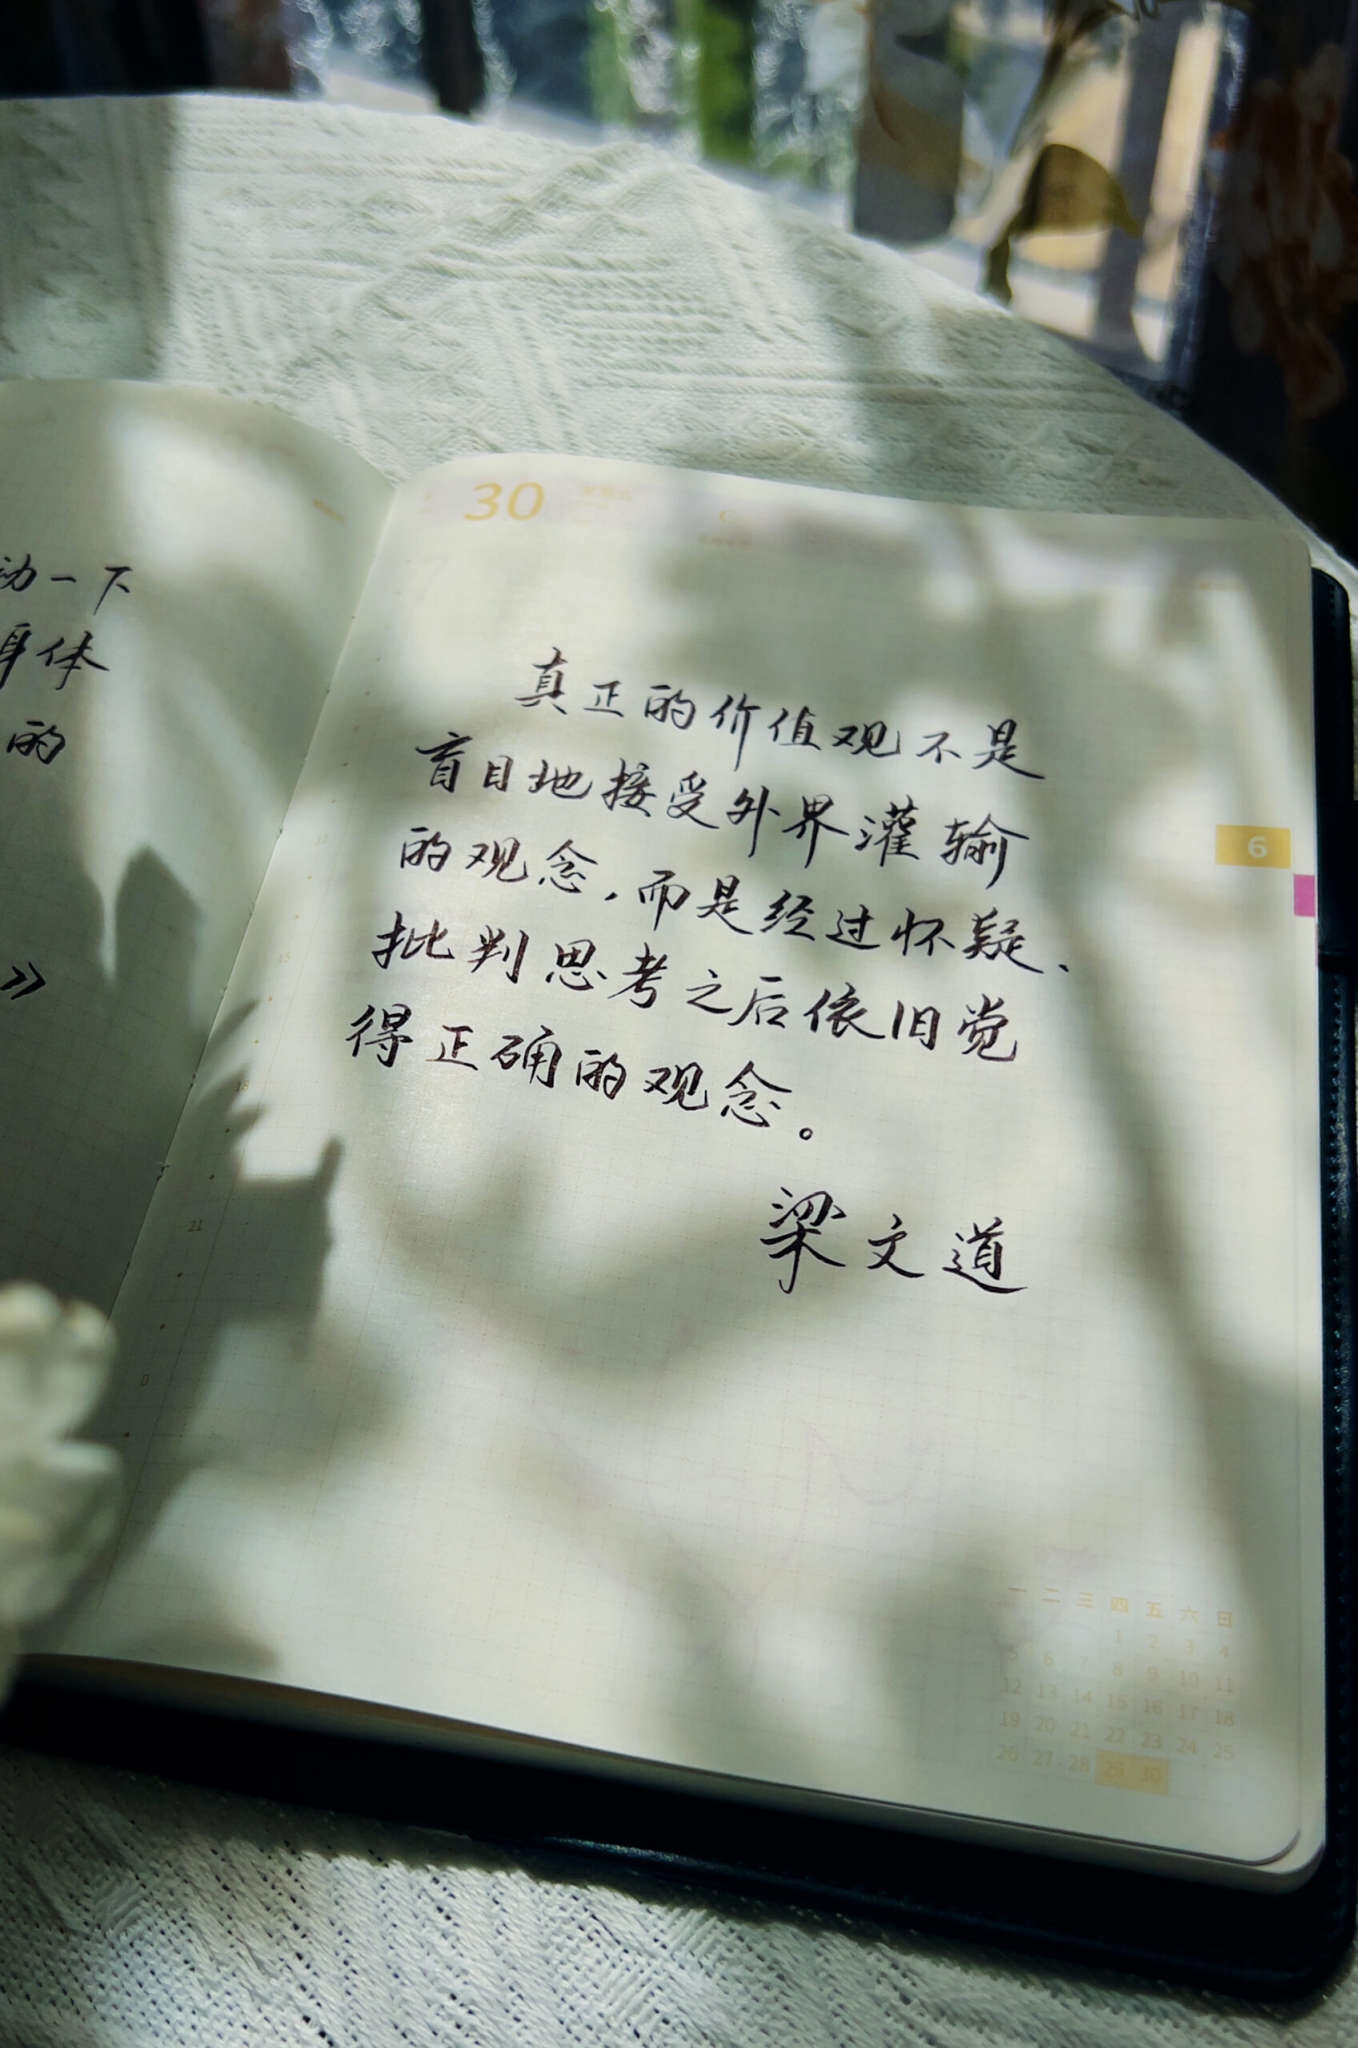 动一下
身体
的
》
30
真正的价值观不是
盲目地接受外界灌输
的观念,而是经过怀疑、
批判思考之后依旧觉
得正确的观念。
梁文道
6
21
0
一 二 三 四 五 六 日
1 2 3 4
5 6 7 8 9 10 11
12 13 14 15 16 17 18
19 20 21 22 23 24 25
26 27 28 29 30